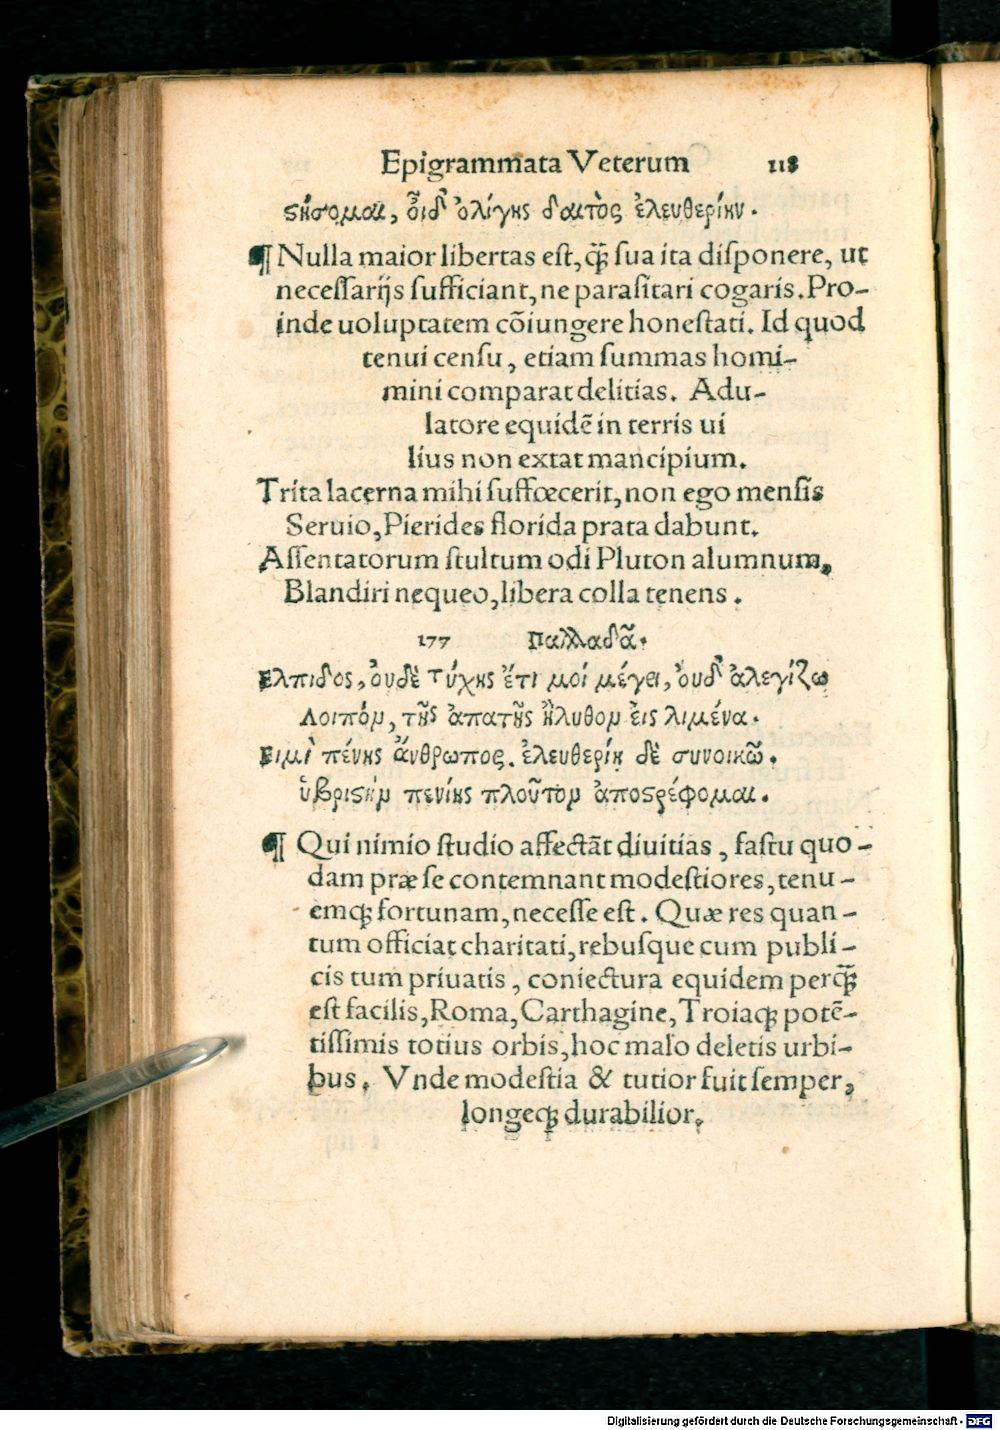 Epigrammata Veterum 118
ϛήσομαι, οἶδ' ὀλίγης δαιτὸς ἐλευθερίην.
¶ Nulla maior libertas est, q̃ꝫ sua ita disponere, ut
necessarijs sufficiant, ne parasitari cogaris. Pro-
inde uoluptatem cõiungere honestati. Id quod
tenui censu, etiam summas homi-
mini comparat delitias. Adu-
latore equidẽ in terris ui
lius non extat mancipium.
Trita lacerna mihi suffœcerit, non ego mensis
Seruio, Pierides florida prata dabunt.
Assentatorum stultum odi Pluton alumnum,
Blandiri nequeo, libera colla tenens.
177 Παλλαδᾶ.
Ελπιδος, ὀυδὲ τύχης ἔτι μοί μέγει, ὀυδ' ἀλεγίζω
Λοιπὸμ, τῆς ἀπατῆς ἤλυθομ ἐις λιμένα.
Ειμὶ πένης ἄνθρωπος. ἐλευθερίῃ δὲ συνοικῶ.
ὑβριϛὴμ πενίης πλοῦτομ ἀποϛρέφομαι.
¶ Qui nimio studio affectãt diuitias, fastu quo-
dam præ se contemnant modestiores, tenu-
emqꝫ fortunam, necesse est. Quæ res quan-
tum officiat charitati, rebusque cum publi-
cis tum priuatis, coniectura equidem perq̃ꝫ
est facilis, Roma, Carthagine, Troiaqꝫ potẽ-
tissimis totius orbis, hoc malo deletis urbi-
bus. Vnde modestia & tutior fuit semper,
longeqꝫ durabilior.
Digitalisierung gefördert durch die Deutsche Forschungsgemeinschaft - DFG